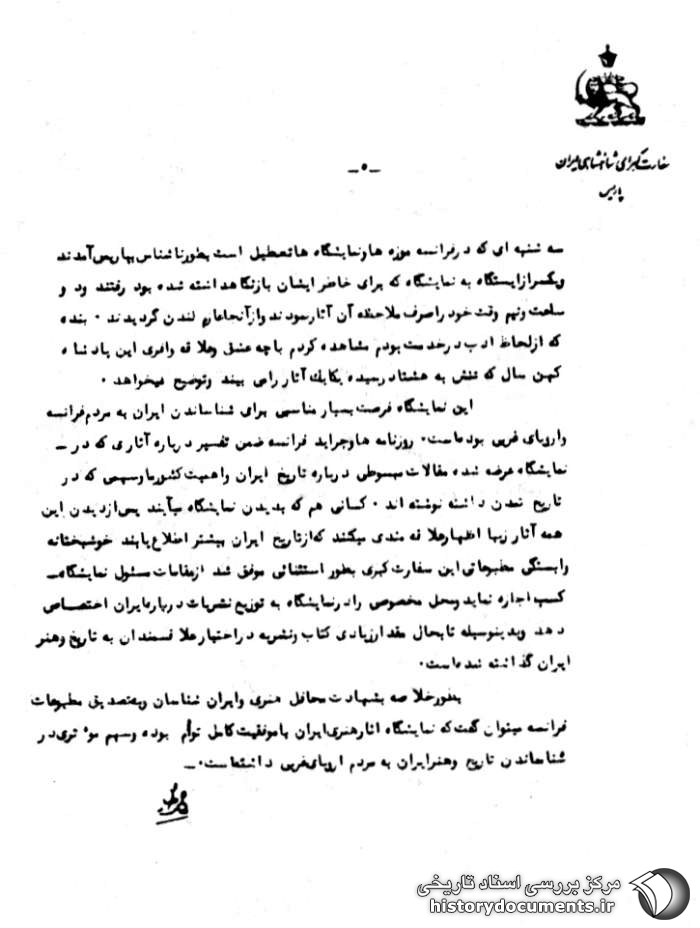 سفارت کبرای شاهنشاهی ایران
پاریس
-۵-
سه شنبه ای که در فرانسه موزه ها و نمایشگاه ها تعطیل است بطور ناشناس بپاریس آمدند
و یکسر از ایستگاه به نمایشگاه که برای خاطر ایشان باز نگاهداشته شده بود رفتند و دو
ساعت و نیم وقت خود را صرف ملاحظه آن آثار نمودند و از آنجا عازم لندن گردیدند ۰ بنده
که از لحاظ ادب در خدمت بودم مشاهده کردم با چه عشق و علاقه وافری این پادشاه
کهن سال که سنش به هشتاد رسیده یکایک آثار را می بیند و توضیح میخواهد ۰
این نمایشگاه فرصت بسیار مناسبی برای شناساندن ایران به مردم فرانسه
و اروپای غربی بوده است۰ روزنامه ها و جراید فرانسه ضمن تفسیر درباره آثاری که در -
نمایشگاه عرضه شده مقالات مبسوطی درباره تاریخ ایران و اهمیت کشور ما و سهمی که در
تاریخ تمدن داشته نوشته اند ۰ کسانی هم که بدیدن نمایشگاه میآیند پس از دیدن این
همه آثار زیبا اظهار علاقه مندی میکنند که از تاریخ ایران بیشتر اطلاع یابند خوشبختانه
وابستگی مطبوعاتی این سفارت کبری بطور استثنائی موفق شد از مقامات مسئول نمایشگاه-
کسب اجازه نماید و محل مخصوصی را در نمایشگاه به توزیع نشریات درباره ایران اختصاص
دهد و بدینوسیله تا بحال مقدار زیادی کتاب و نشریه در اختیار علاقمندان به تاریخ و هنر
ایران گذاشته شده است۰
بطور خلاصه بشهادت محافل هنری و ایران شناسان و به تصدیق مطبوعات
فرانسه میتوان گفت که نمایشگاه آثار هنری ایران با موفقیت کامل توأم بوده و سهم مؤثری در
شناساندن تاریخ و هنر ایران به مردم اروپای غربی داشته است۰-
مرکز بررسی اسناد تاریخی
historydocuments.ir